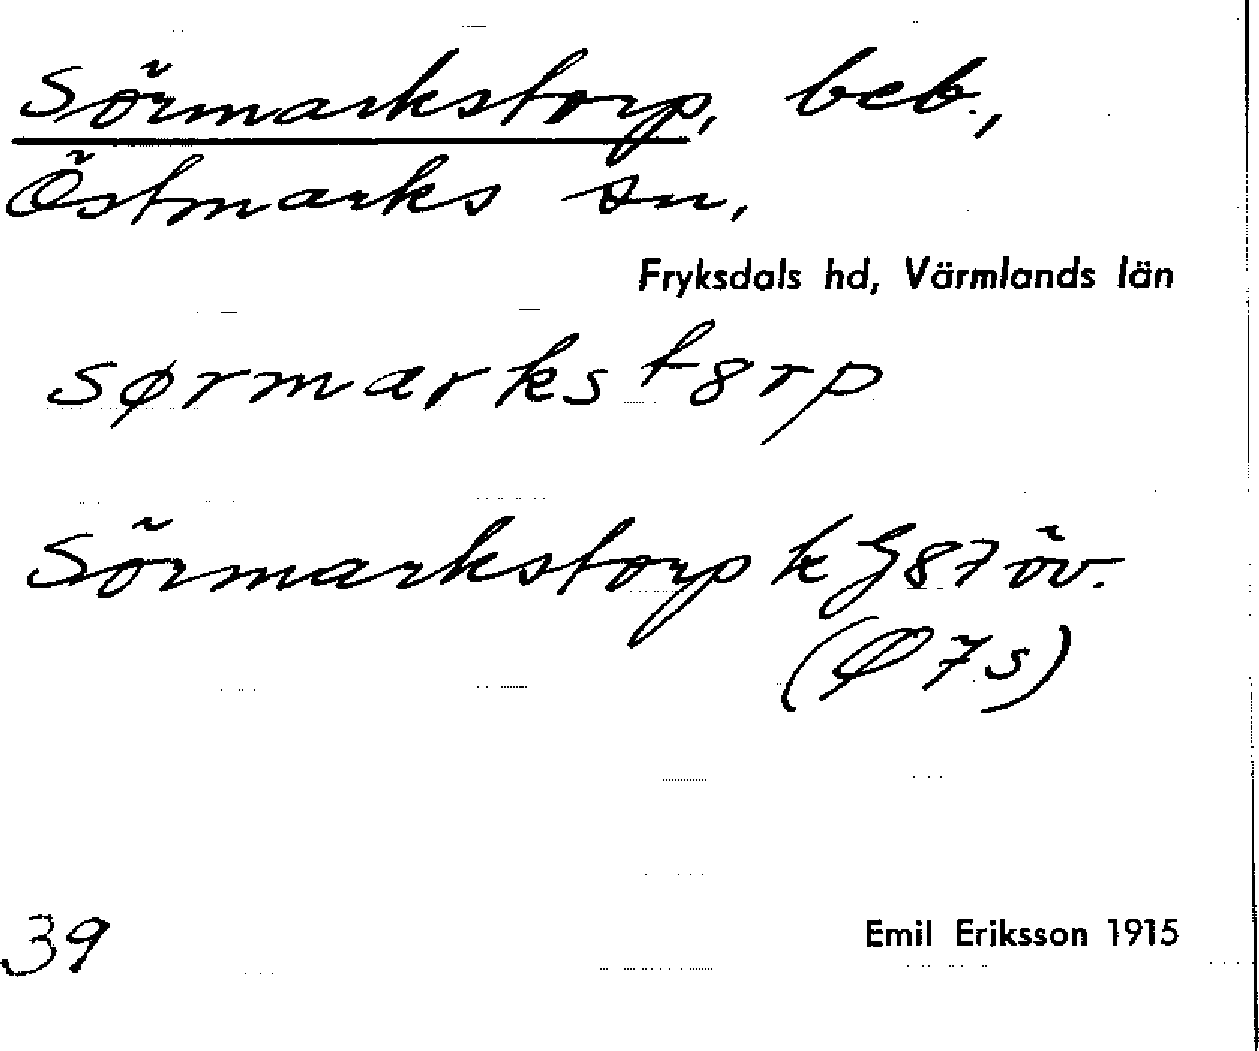 Sörmarkstorp, beb.,
Östmarks sn,
Fryksdals hd, Värmlands län
sørmarkst8rp
Sörmarkstorp k J87 öv.
(Ø 7s)
39
Emil Eriksson 1915